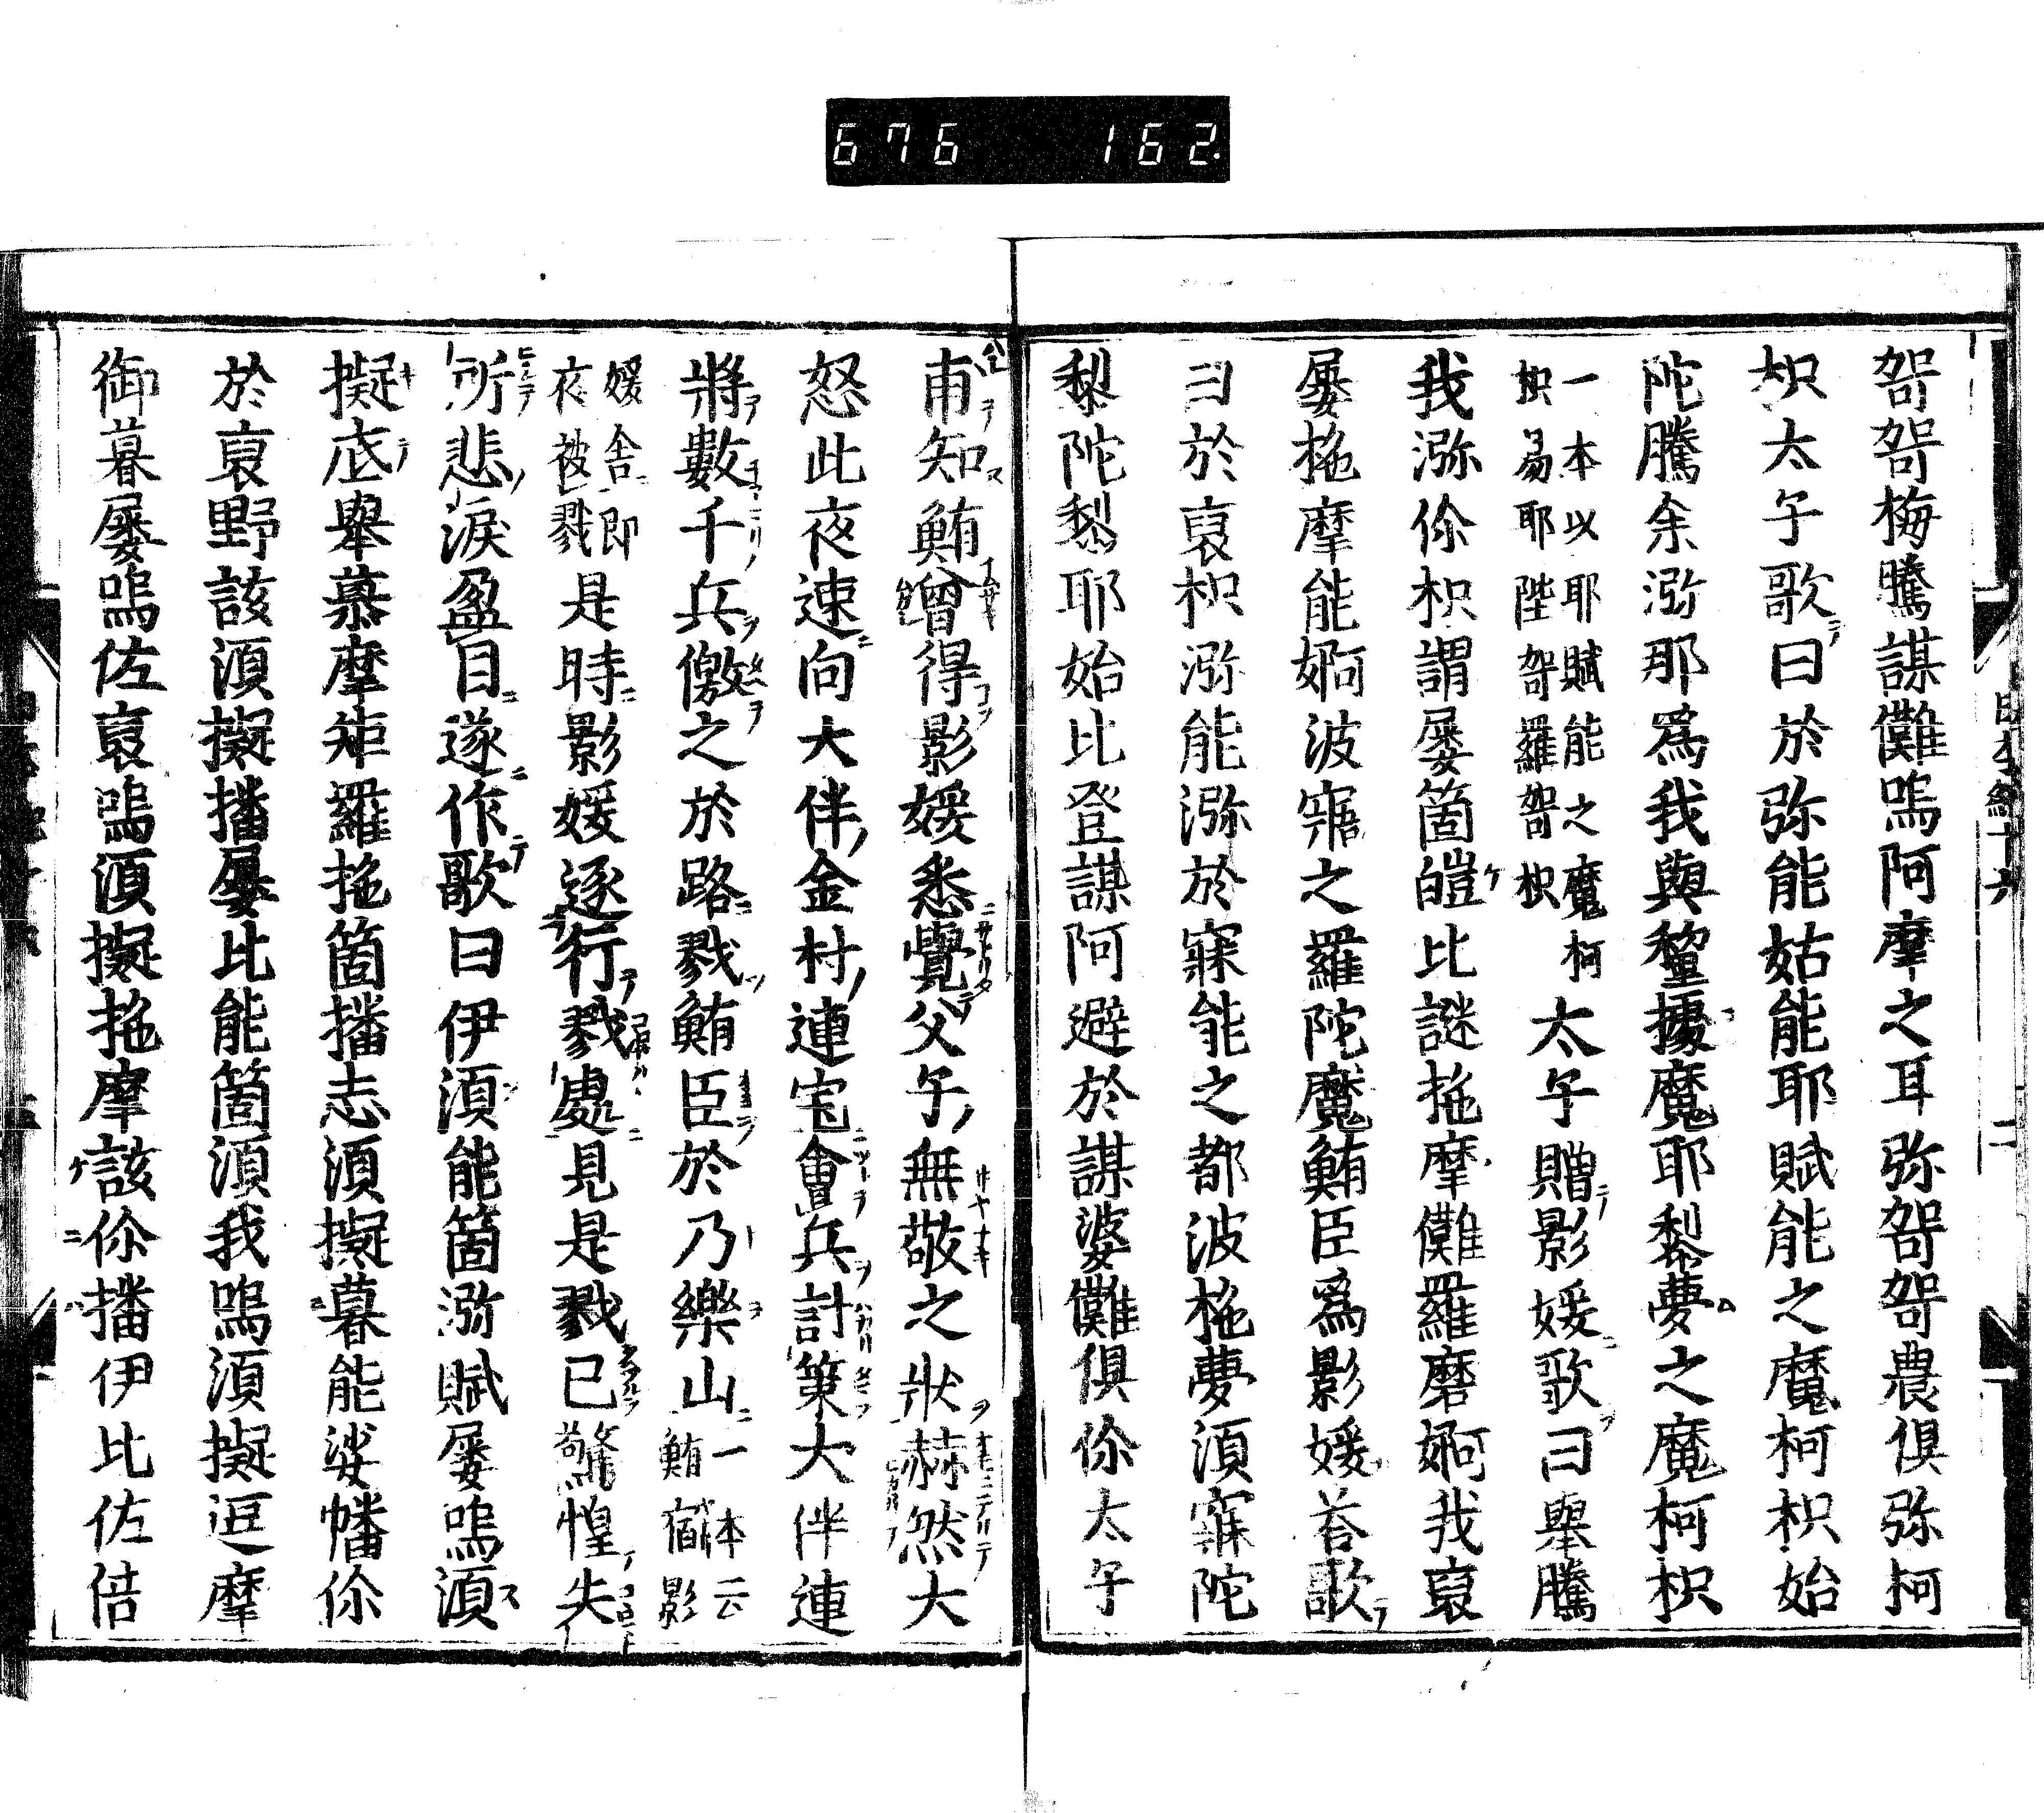 676 162
哿哿梅騰謀儺嗚阿摩之耳弥哿哿農倶弥柯
枳太子歌曰於弥能姑能耶賦能之魔柯枳始
陀騰余濔那為我與釐擾魔耶黎夢之魔柯枳
一本以耶賦能之魔柯
枳易耶陛哿羅哿枳
太子贈影媛歌曰舉騰
我濔伱枳謂屡箇皚比謎拖摩儺羅磨婀我裒
屡拖摩能婀波寐之羅陀魔鮪臣為影媛荅歌
曰於裒枳濔能濔於寐能之都波拖夢湏寐陀
黎陀黎耶始比登謀阿避於謀婆儺倶伱太子
甫知鮪曾得影媛悉覺父子無敬之狀赫然大
怒此夜速向大伴金村連宅會兵計策大伴連
將數千兵儌之於路戮鮪臣於乃樂山
一本云
鮪宿影
媛舎即
夜被戮
是時影媛逐行戮處見是戮已驚惶失
所悲淚盈目遂作歌曰伊湏能箇濔賦屡嗚湏
擬底舉慕摩矩羅拖箇播志湏擬暮能娑幡伱
於裒野該湏擬播屡比能箇湏我嗚湏擬逗摩
御暮屡嗚佐裒嗚湏擬拖摩該伱播伊比佐倍